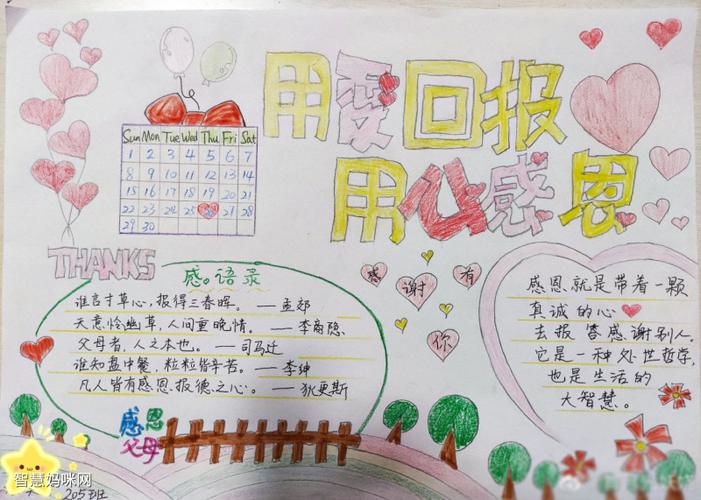 用爱回报
用心感恩
Sun Mon Tue Wed Thu Fri Sat
1 2 3 4 5 6 7
8 9 10 11 12 13 14
15 16 17 18 19 20 21
22 23 24 25 26 27 28
29 30
THANKS
感。语录
谁言寸草心,报得三春晖。 —孟郊
天意怜幽草,人间重晚情。 —李商隐
父母者,人之本也。 —司马迁
谁知盘中餐,粒粒皆辛苦。 —李绅
凡人皆有感恩报德之心。 —狄更斯
感谢有你
感恩就是带着一颗
真诚的心
去报答感谢别人。
它是一种处世哲学,
也是生活的
大智慧。
感恩
父母
智慧妈咪网
205班